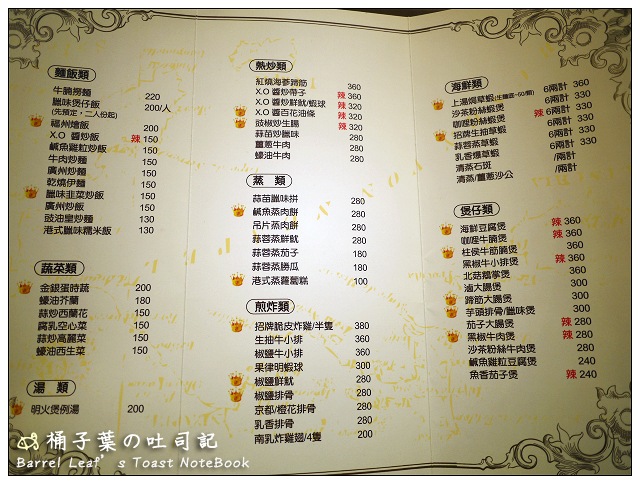 麵飯類
牛腩撈麵 220
臘味煲仔飯 200/人
(先預定，二人份起)
福州燴飯 200
X.O 醬炒飯 辣 150
鹹魚雞粒炒飯 150
牛肉炒麵 150
廣州炒麵 150
乾燒伊麵 150
臘味韭菜炒飯 150
廣州炒飯 150
豉油皇炒麵 130
港式臘味糯米飯 130
蔬菜類
金銀蛋時蔬 200
蠔油芥蘭 180
蒜炒西蘭花 150
腐乳空心菜 150
蒜炒高麗菜 150
蠔油西生菜 150
湯 類
明火煲例湯 200
熱炒類
紅燒海蔘蹄筋 360
X.O 醬炒帶子 辣 360
X.O 醬炒鮮魷/蝦球 辣 320
X.O 醬百花油條 辣 320
豉椒炒生腸 辣 320
蒜苗炒臘味 280
薑蔥牛肉 280
蠔油牛肉 280
蒸 類
蒜苗臘味拼 280
鹹魚蒸肉餅 280
吊片蒸肉餅 280
蒜蓉蒸鮮魷 280
蒜蓉蒸茄子 180
蒜蓉蒸勝瓜 180
港式蒸蘿蔔糕 100
煎炸類
招牌脆皮炸雞/半隻 380
生抽牛小排 360
椒鹽牛小排 360
果律明蝦球 300
椒鹽鮮魷 280
椒鹽排骨 280
京都/橙花排骨 280
乳香排骨 280
南乳炸雞翅/4隻 200
海鮮類
上湯燒草蝦 6兩計 360
沙茶粉絲蝦煲 辣 6兩計 330
咖喱粉絲蝦煲 6兩計 330
招牌生抽草蝦 6兩計 330
蒜蓉蒸草蝦 6兩計 330
乳香爆草蝦 6兩計 330
清蒸石斑 /兩計
清蒸/薑蔥沙公 /兩計
煲仔類
海鮮豆腐煲 辣 360
咖喱牛腩煲 辣 360
柱侯牛筋腩煲 360
黑椒牛小排煲 辣 360
北菇鵝掌煲 360
滷大腸煲 300
蹄筋大腸煲 300
芋頭排骨/臘味煲 300
茄子大腸煲 辣 280
黑椒牛肉煲 辣 280
沙茶粉絲牛肉煲 280
鹹魚雞粒豆腐煲 240
魚香茄子煲 辣 240
桶子葉の吐司記
Barrel Leaf's Toast NoteBook